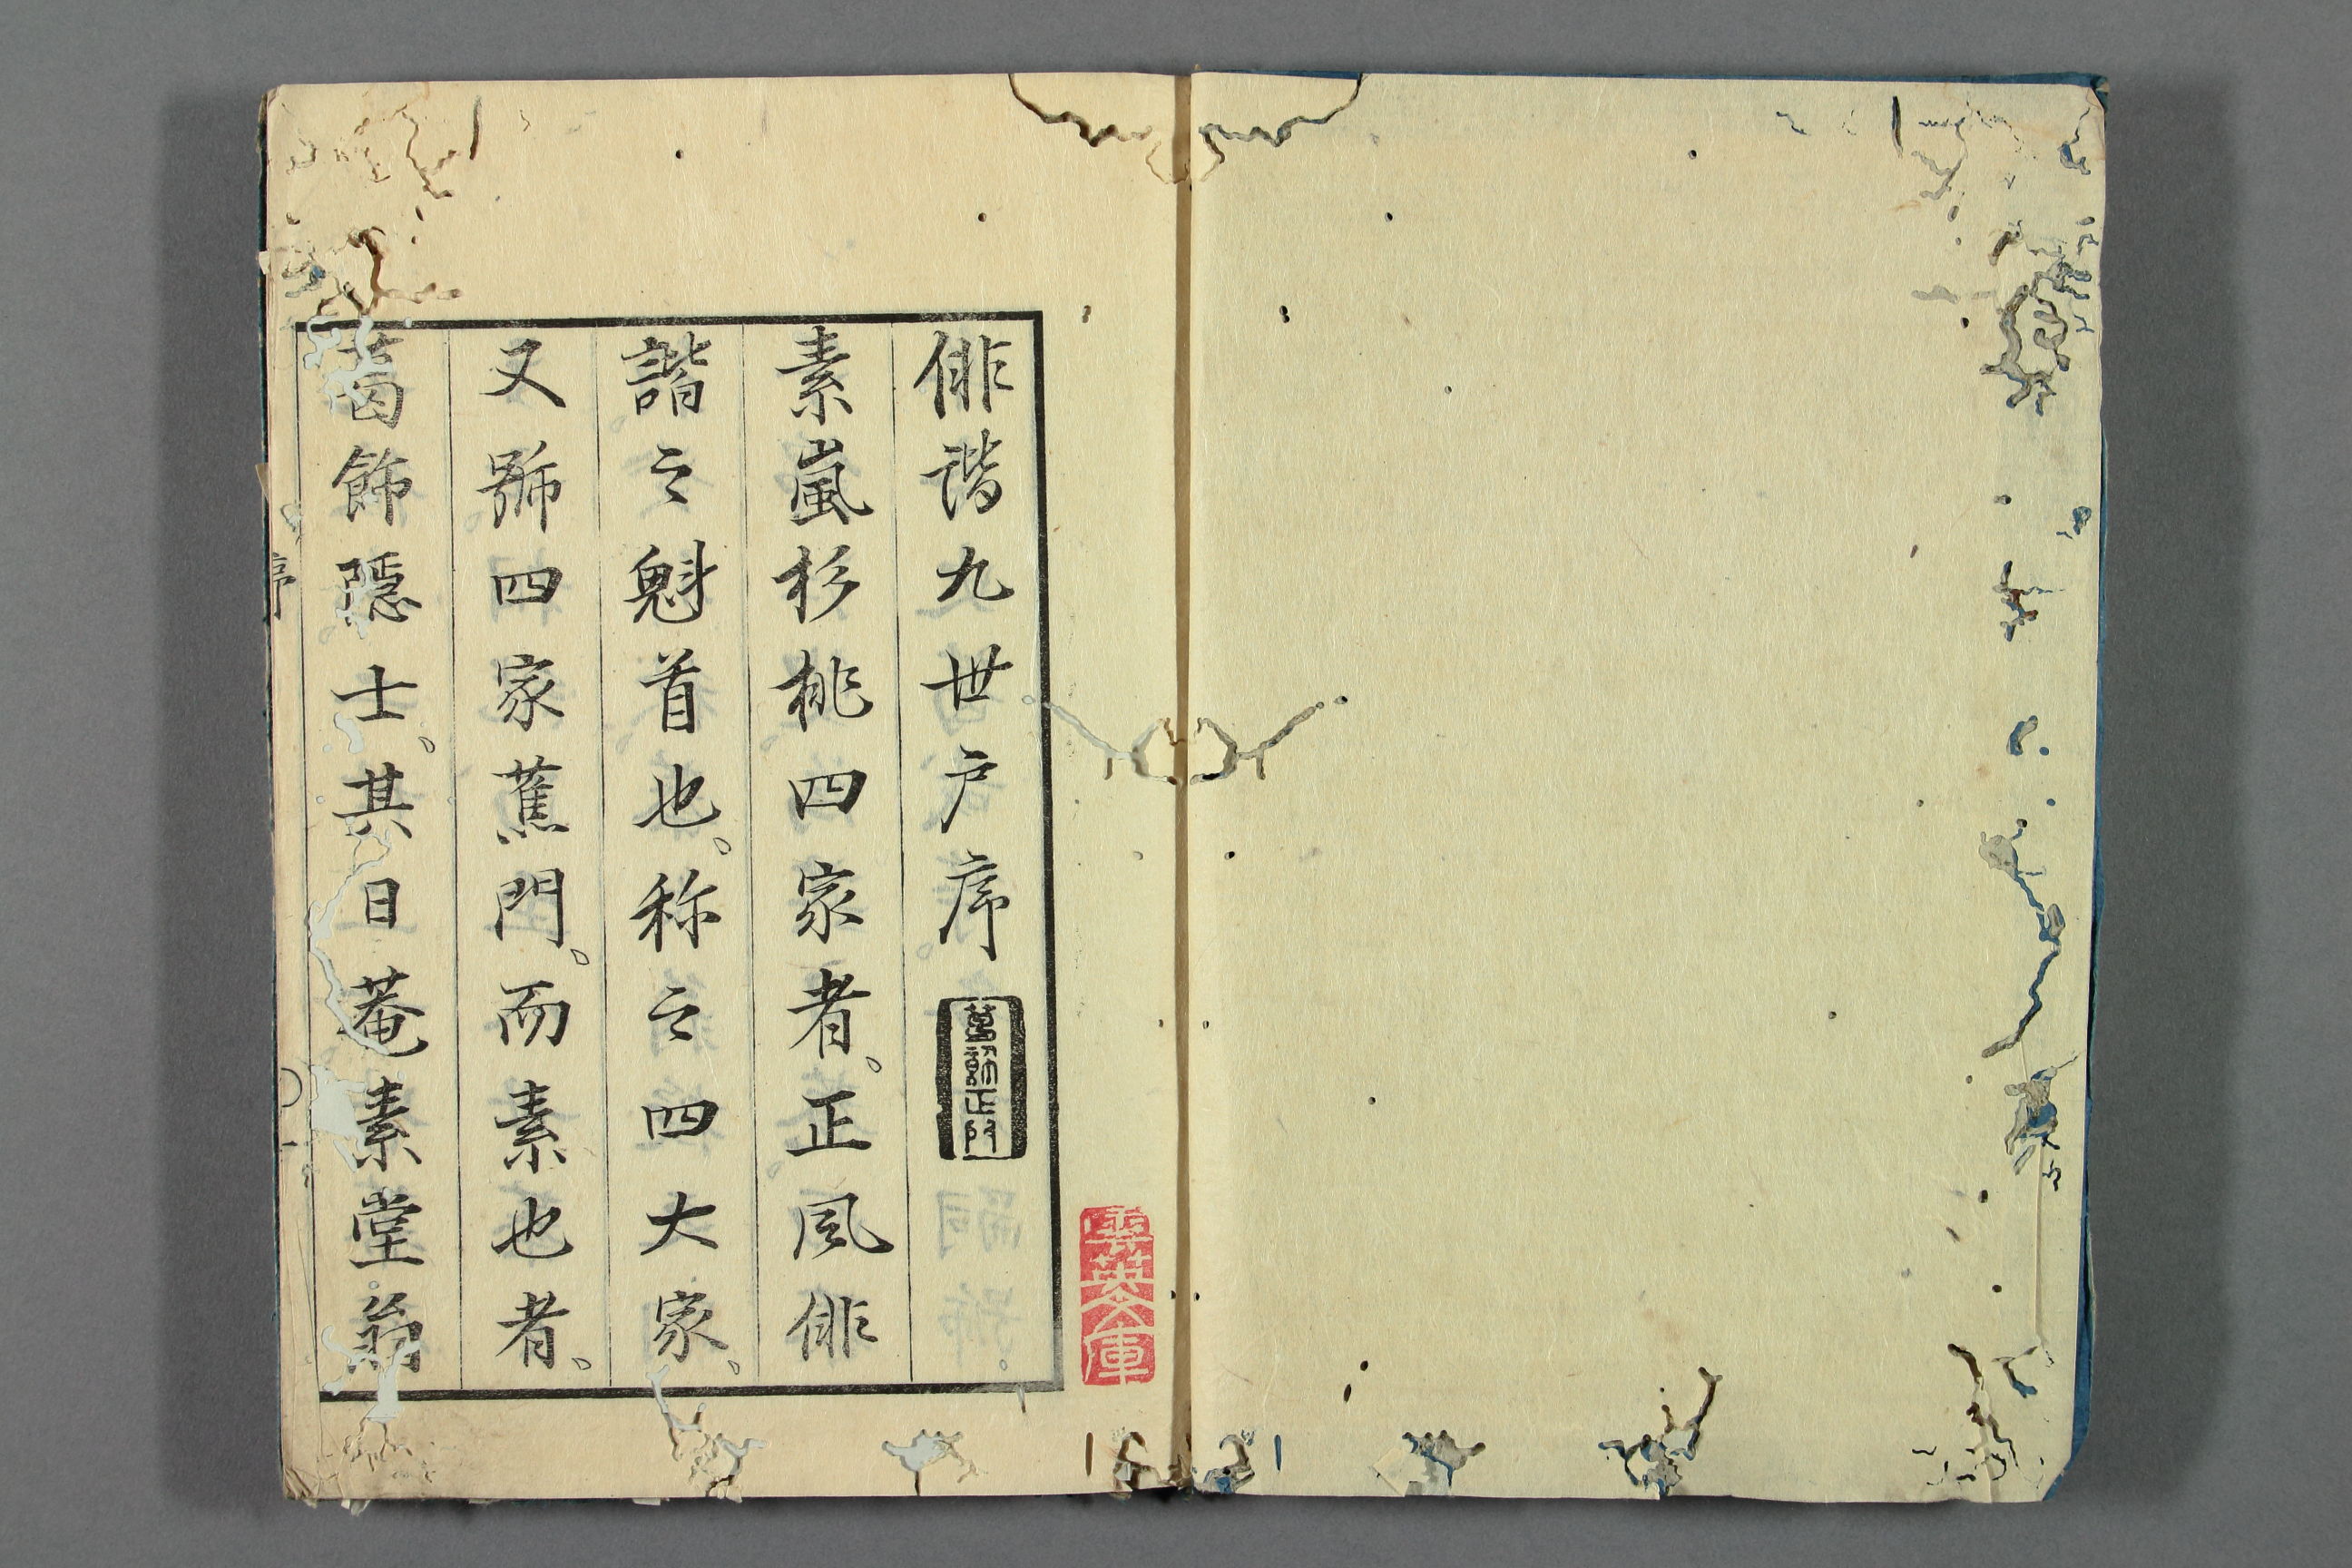 俳諧九世戸序
葛飾正門
素嵐杉桃四家者。正風俳
諧之魁首也、称之四大家、
又号四家蕉門。而素也者、
葛飾隠士、其日菴素堂翁
序
雲英文庫